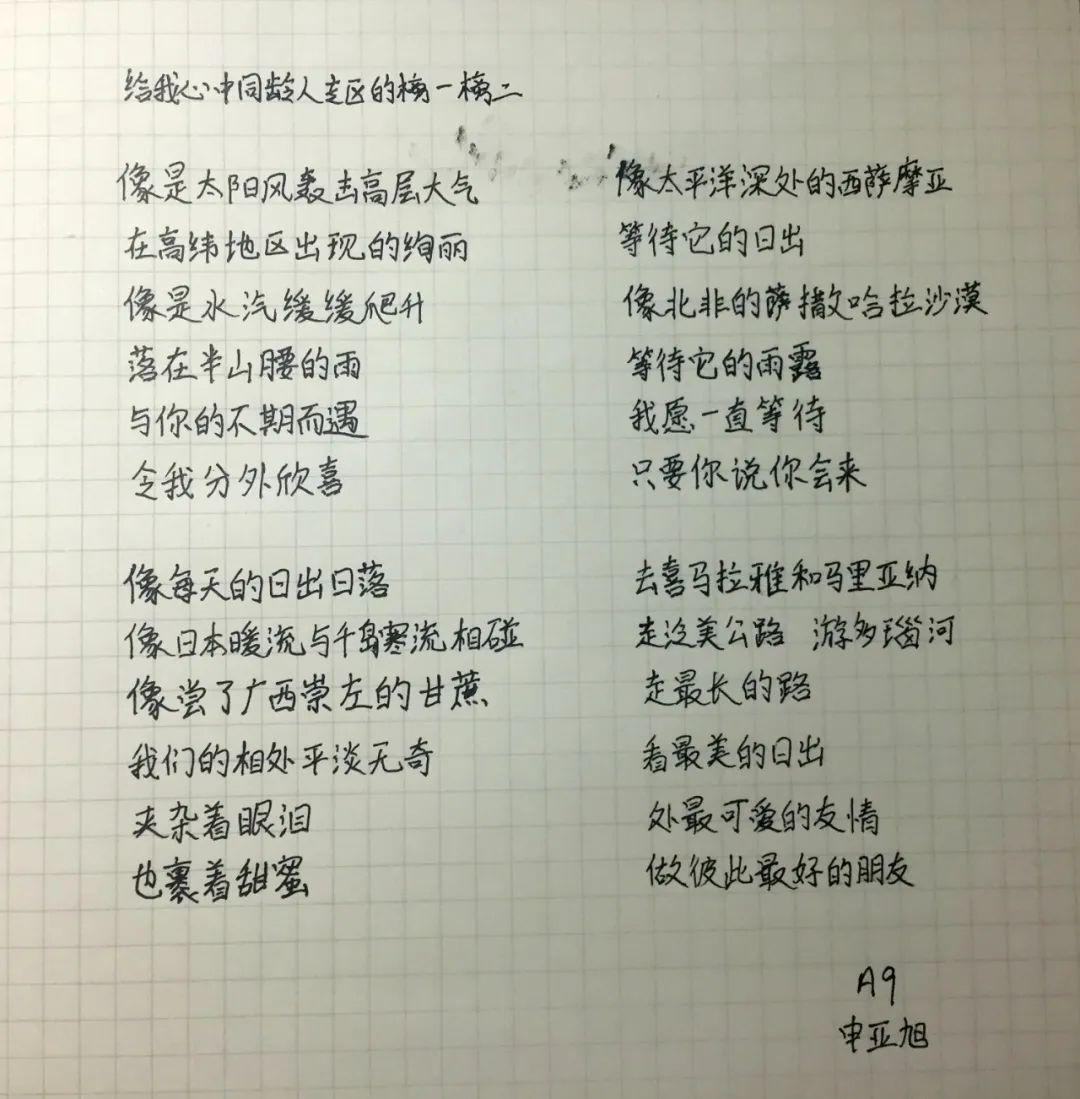 给我心中同龄人专区的榜一榜二
像是太阳风轰击高层大气
在高纬地区出现的绚丽
像是水汽缓缓爬升
落在半山腰的雨
与你的不期而遇
令我分外欣喜
像每天的日出日落
像日本暖流与千岛寒流相碰
像尝了广西崇左的甘蔗
我们的相处平淡无奇
夹杂着眼泪
也裹着甜蜜
像太平洋深处的西萨摩亚
等待它的日出
像北非的萨撒哈拉沙漠
等待它的雨露
我愿一直等待
只要你说你会来
去喜马拉雅和玛里亚纳
走泛美公路 游多瑙河
走最长的路
看最美的日出
处最可爱的友情
做彼此最好的朋友
A9
申亚旭